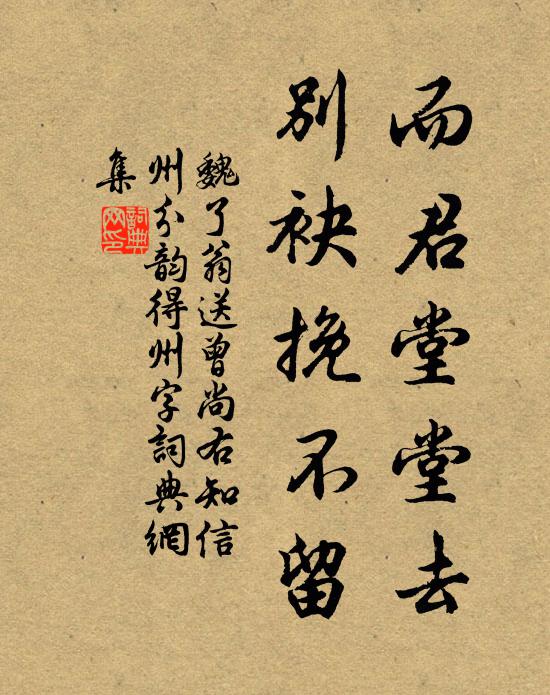 而君堂堂去
别袂挽不留
魏了翁送曾尚右知信
州分韵得州字詞典網
集
詞典
网印